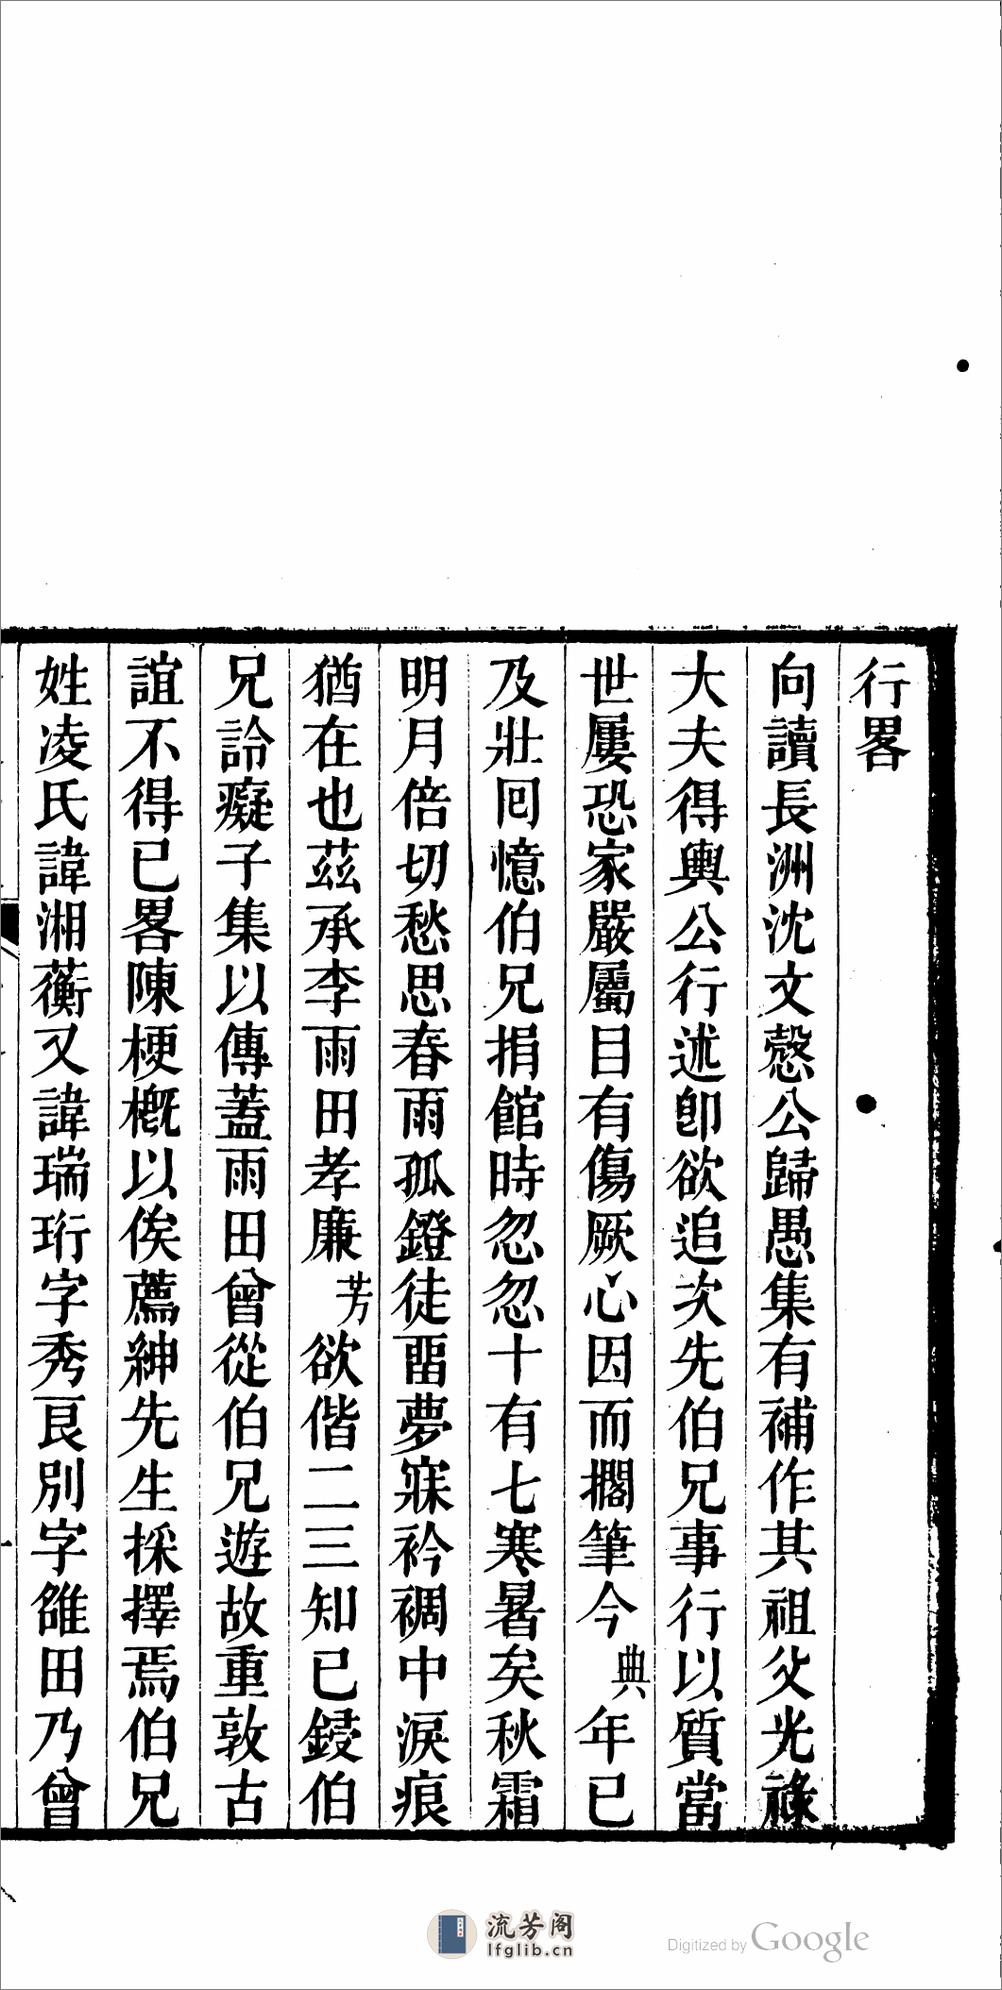 行畧
向讀長洲沈文慤公歸愚集有補作其祖父光祿
大夫得輿公行述卽欲追次先伯兄事行以質當
世屢恐家嚴屬目有傷厥心因而擱筆今典年已
及壯囘憶伯兄捐館時忽忽十有七寒暑矣秋霜
明月倍切愁思春雨孤鐙徒畱夢寐衿裯中淚痕
猶在也茲承李雨田孝廉芳欲偕二三知已鋟伯
兄詅癡子集以傳蓋雨田曾從伯兄遊故重敦古
誼不得已畧陳梗槪以俟薦紳先生採擇焉伯兄
姓凌氏諱湘蘅又諱瑞珩字秀艮別字雒田乃曾
流芳阁
lfglib.cn
Digitized by Google